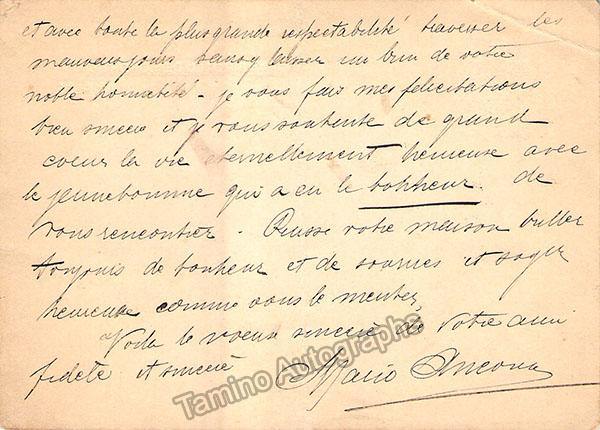 et avec toute la plus grande respectabilité traverser les
mauvais jours sans y laisser un brin de votre
noble honnêtété - je vous fais mes felicitations
bien sincere et je vous souhente de grand
coeur la vie eternellement heureuse avec
le jeune homme qui a eu le bonheur de
vous rencontrer - Puisse votre maison briller
toujours de bonheur et de sourires et soyez
heureuse comme vous le meritez,
Voila le voeux sincere de votre ami
fidele et sincere Mario Ancona
Tamino Autographs